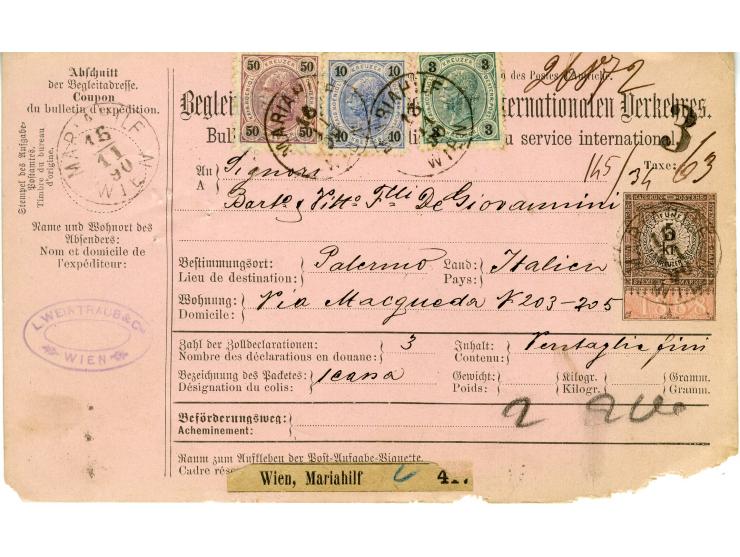 Abschnitt
der Begleitadresse.
Coupon
du bulletin d'expédition.
Stempel des Aufgabe-
Postamtes.
Timbre du bureau
d'origine.
MARIAHILF
15
11
90
WIEN
Name und Wohnort des
Absenders:
Nom et domicile de
l'expéditeur:
L. WEINTRAUB & Co
WIEN
50 KREUZER 50
50 50
10 KREUZER 10
10 10
3 KREUZER 3
3 3
MARIAHILF
WIEN
MARIAHILF
15
WIEN
des Postes d'Autriche.
Beglei internationalen Verkehres.
Bul u service international.
3
Taxe:
145/34/63
An
A
Signori
Barto & Vitto Flli De Giovannini
Bestimmungsort:
Lieu de destination:
Palermo
Land:
Pays:
Italien
Wohnung:
Domicile:
Via Macqueda N 203-205
5
KR
1888
Zahl der Zolldeclarationen:
Nombre des déclarations en douane:
3
Inhalt:
Contenu:
Ventaglie fini
Bezeichnung des Packetes:
Désignation du colis:
1 cassa
Gewicht:
Poids:
Kilogr.
Kilogr.
Gramm.
Gramm.
Beförderungsweg:
Acheminement:
2
Raum zum Aufkleben der Post-Aufgabe-Vignette.
Cadre rése
Wien, Mariahilf